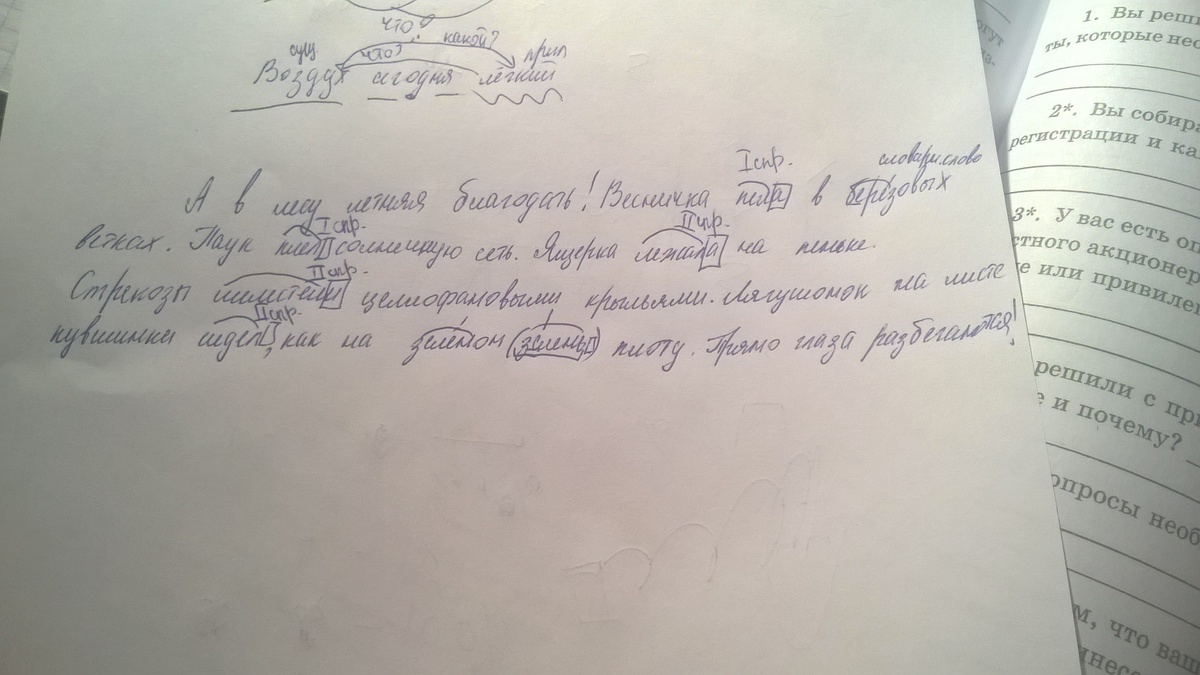 что?
что? какой?
сущ прил
Воздух сегодня лёгкий
I спр. словарн.слово
А в лесу летняя благодать! Весничка пела в берёзовых
I спр. II спр.
ветках. Паук плёл солнечную сеть. Ящерка лежала на пеньке.
II спр.
Стрекозы целлофановыми крыльями. Лягушонок на листе
II спр.
кувшинки сидел, как на зелёном (зелень) плоту. Прямо глаза разбегаются!
1. Вы реши
ты, которые нес
2*. Вы собира
регистрации и ка
3*. У вас есть оп
стного акционер
е или привилег
решили с при
е и почему?
опросы необ
м, что ваш
огут
на.